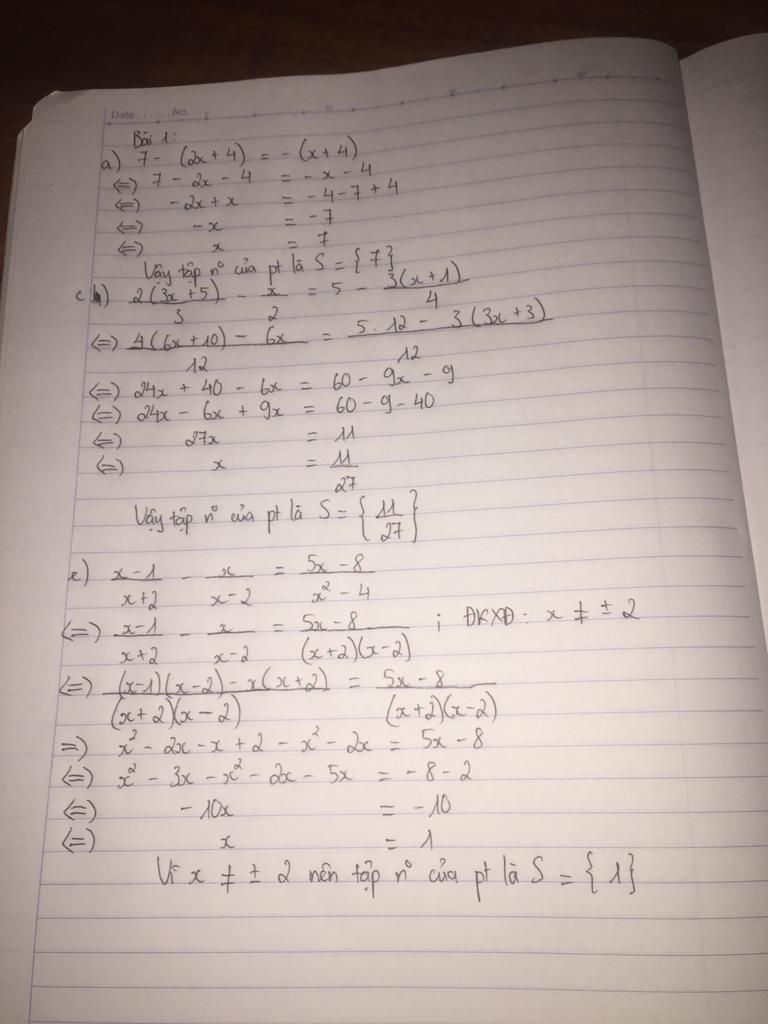 Date ...... No ....
Bài 1:
a) 7 - (2x + 4) = - (x + 4)
<=> 7 - 2x - 4 = - x - 4
<=> - 2x + x = - 4 - 7 + 4
<=> - x = - 7
<=> x = 7
Vậy tập n° của pt là S = {7}
c) 2(3x + 5)/3 - x/2 = 5 - 3(x + 1)/4
<=> 4(6x + 10) - 6x/12 = 5 . 12 - 3(3x + 3)/12
<=> 24x + 40 - 6x = 60 - 9x - 9
<=> 24x - 6x + 9x = 60 - 9 - 40
<=> 27x = 11
<=> x = 11/27
Vậy tập n° của pt là S = {11/27}
e) x - 1/x + 2 - x/x - 2 = 5x - 8/x² - 4
<=> x - 1/x + 2 - x/x - 2 = 5x - 8/(x + 2)(x - 2) ; ĐKXĐ: x ≠ ± 2
<=> (x - 1)(x - 2) - x(x + 2)/(x + 2)(x - 2) = 5x - 8/(x + 2)(x - 2)
=> x² - 2x - x + 2 - x² - 2x = 5x - 8
<=> x² - 3x - x² - 2x - 5x = - 8 - 2
<=> - 10x = - 10
<=> x = 1
Vì x ≠ ± 2 nên tập n° của pt là S = {1}